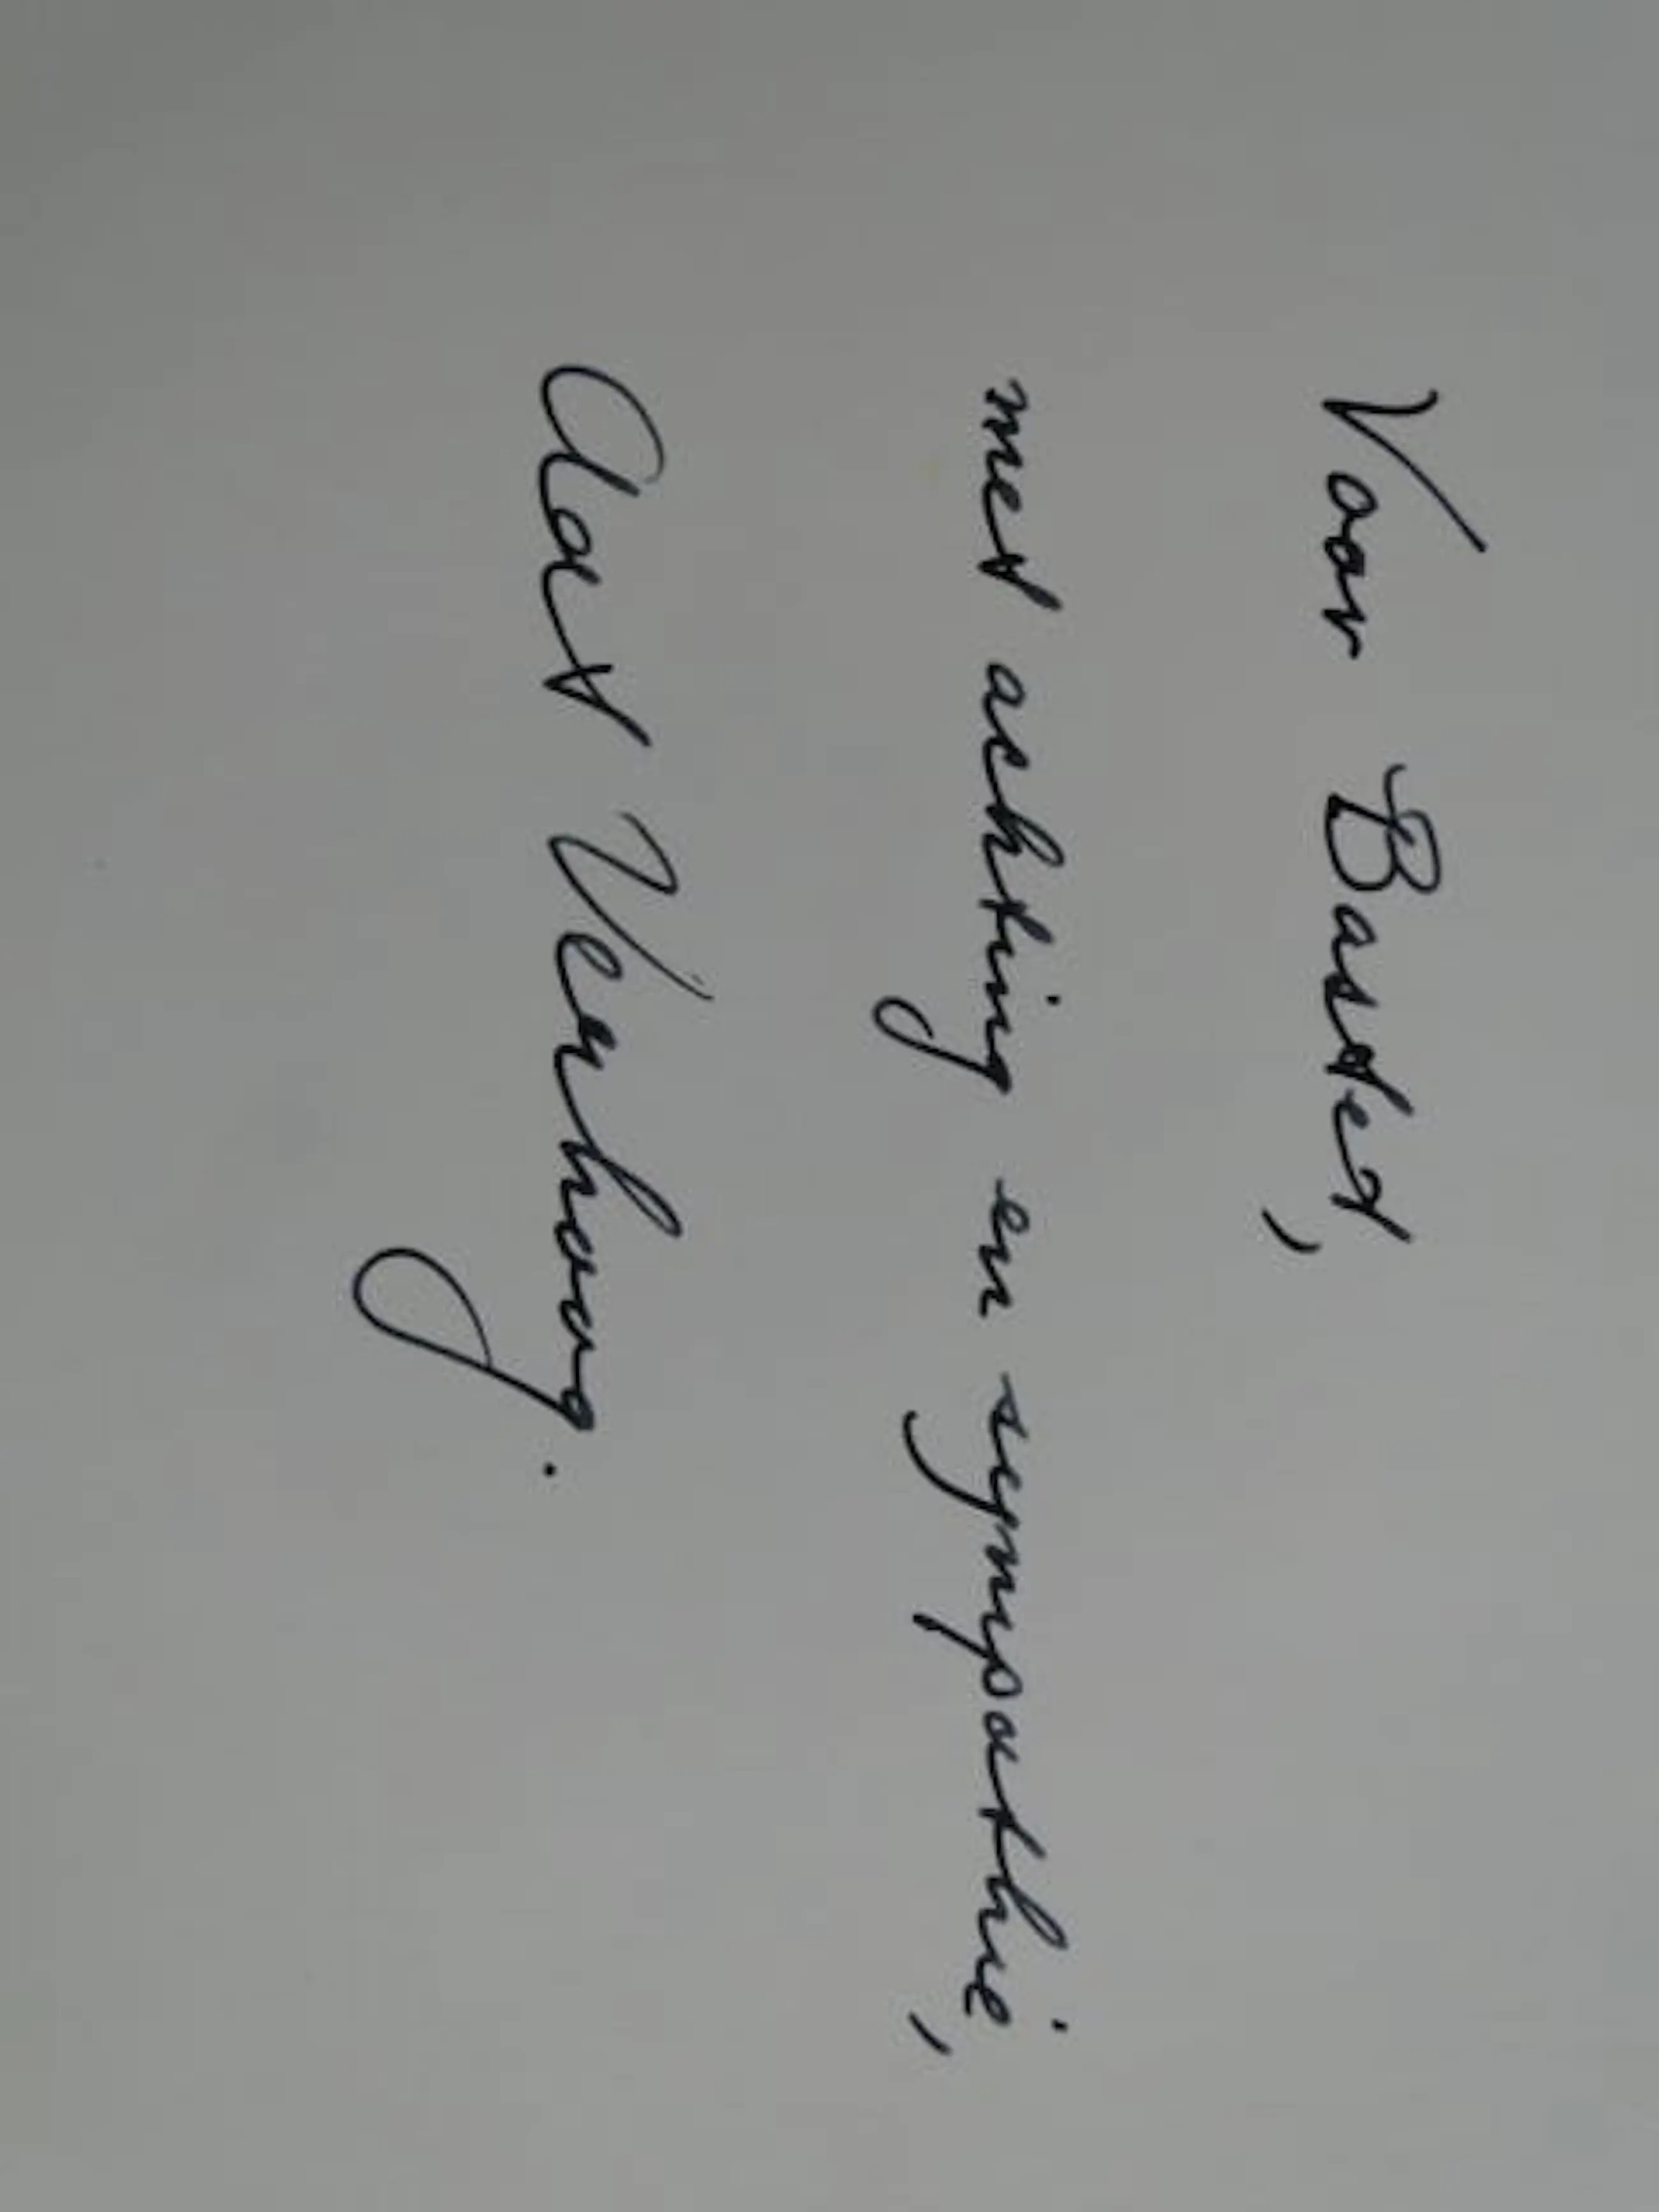 Voor Bastet,
met achting en sympathie,
Aat Verhoog.